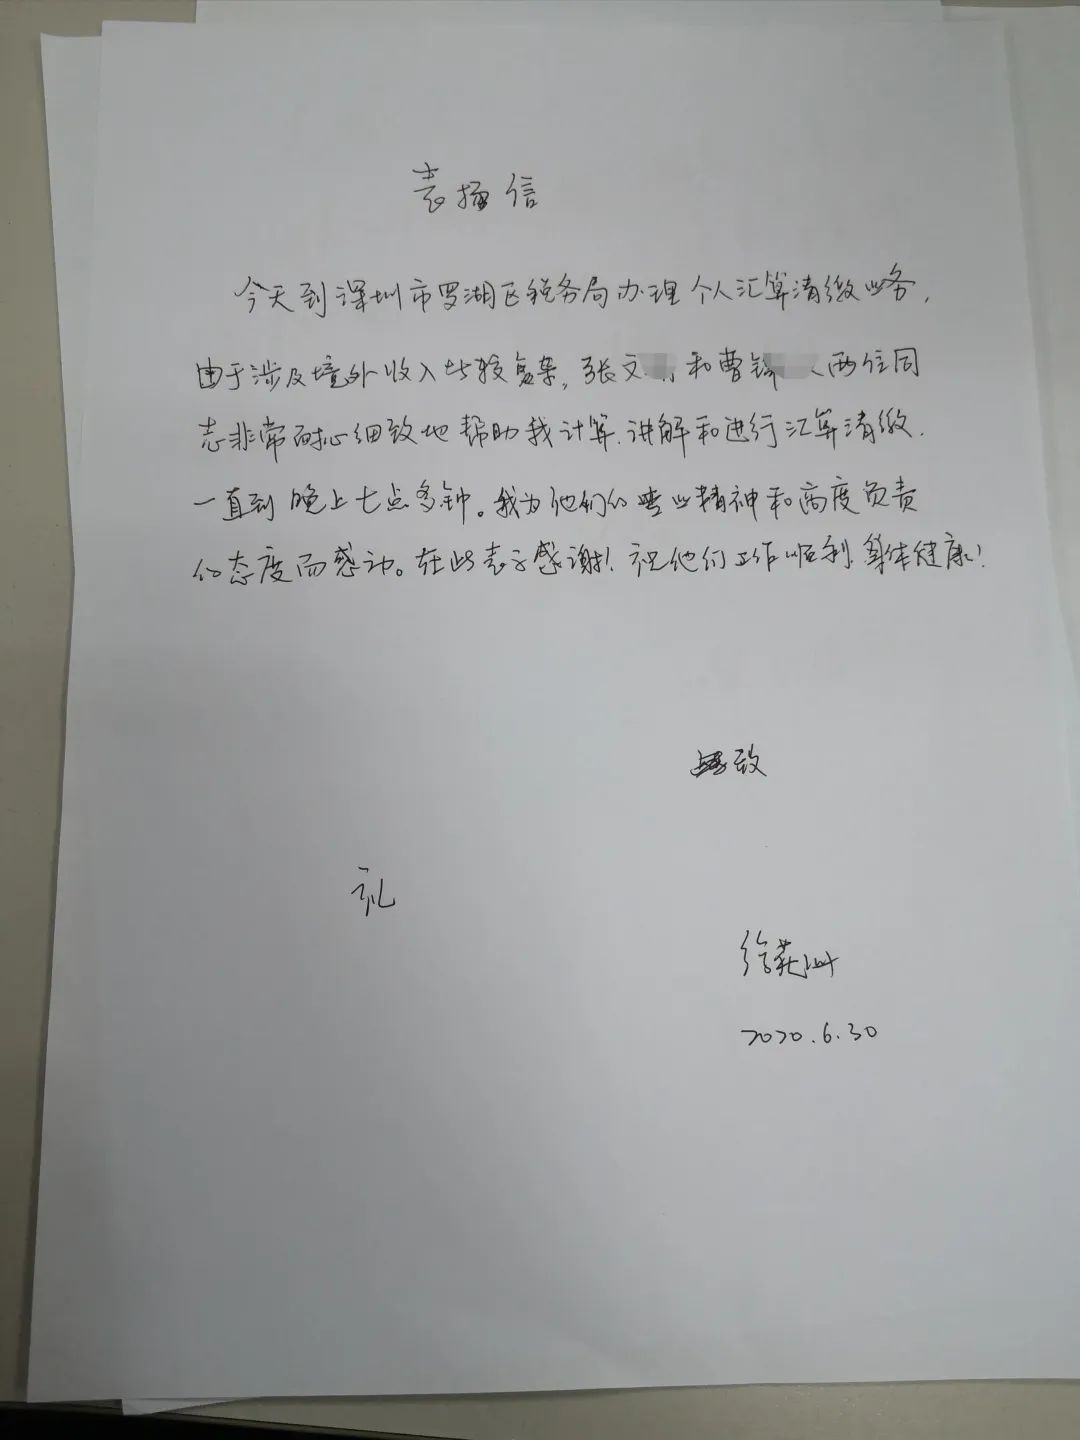 表扬信
今天到深圳市罗湖区税务局办理个人汇算清缴业务,
由于涉及境外收入比较复杂,张文 和曹 两位同
志非常耐心细致地帮助我计算、讲解和进行汇算清缴.
一直到晚上七点多钟。我为他们的专业精神和高度负责
的态度而感动。在此表示感谢!祝他们工作顺利、身体健康!
致
礼
徐
2020.6.30